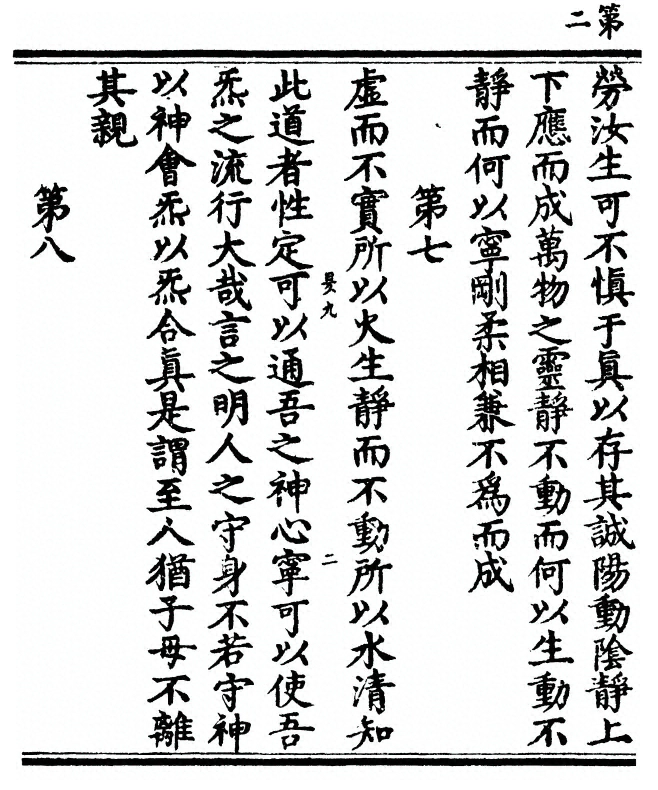 第二
勞汝生可不慎于眞以存其誠陽動陰靜上
下應而成萬物之靈靜不動而何以生動不
靜而何以寧剛柔相兼不爲而成
第七
虛而不實所以火生靜而不動所以水清知
此道者性定可以通吾之神心寧可以使吾
炁之流行大哉言之明人之守身不若守神
以神會炁以炁合眞是謂至人猶子母不離
其親
第八